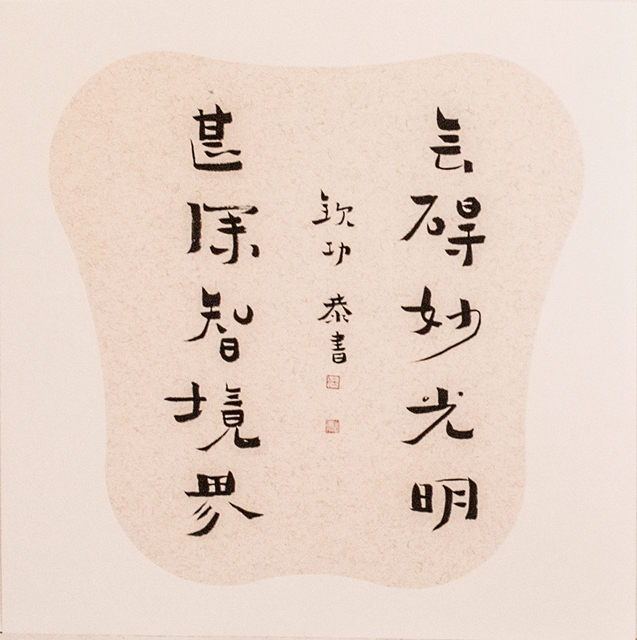 無碍妙光明
甚深智境界
钦功 恭書